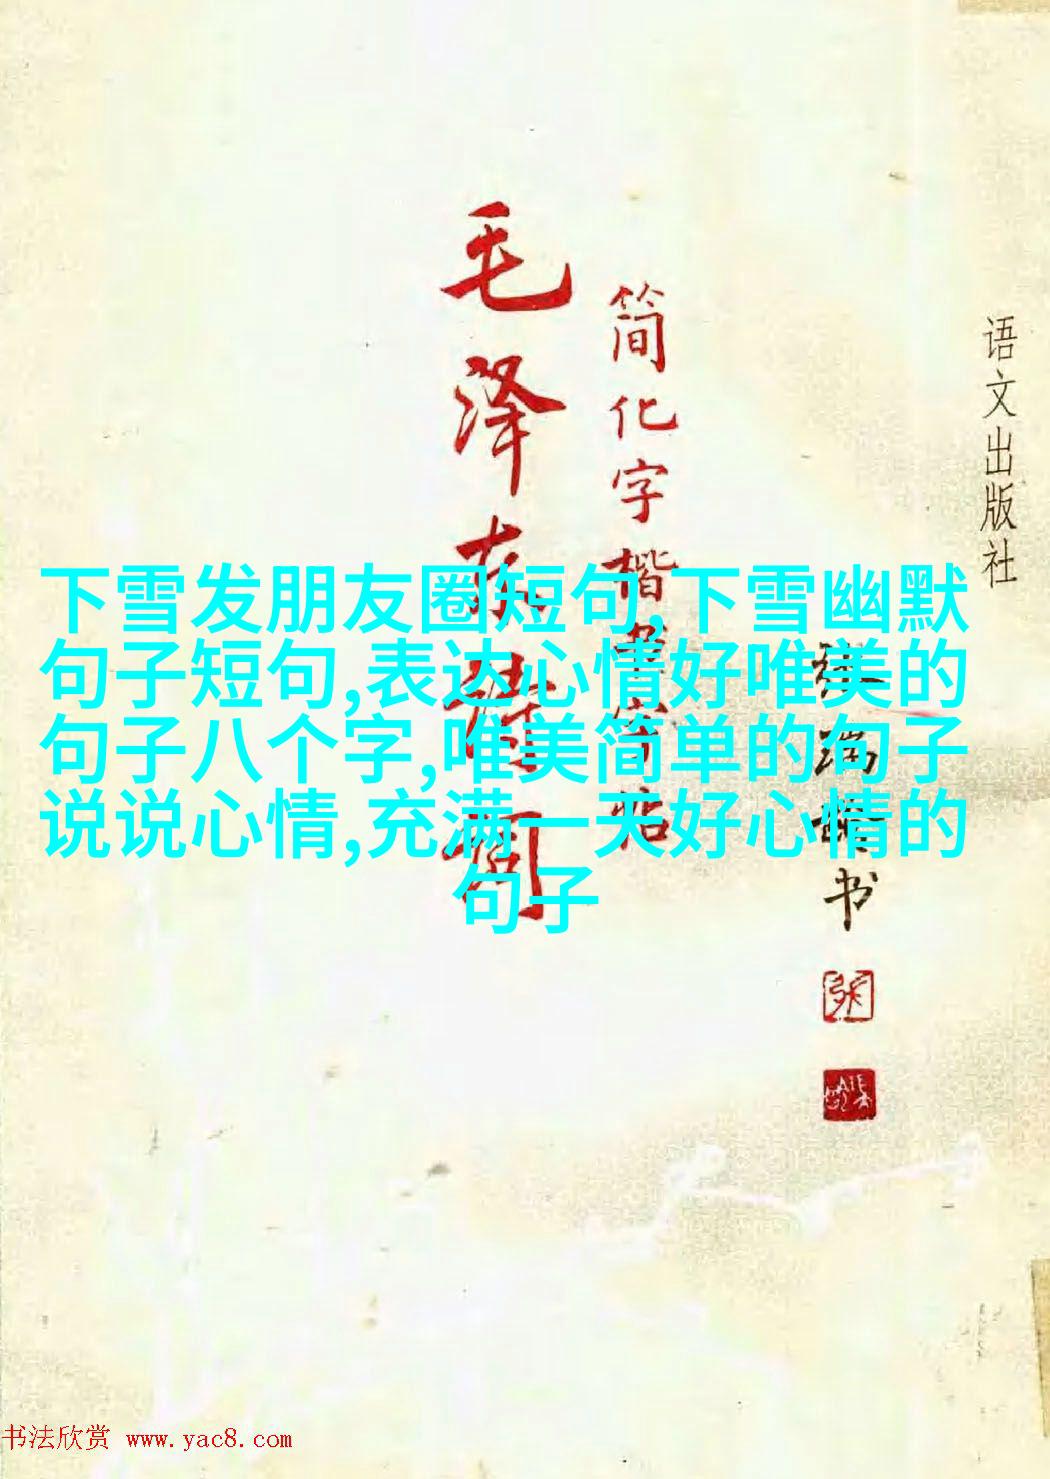 毛泽东诗词
简化字楷书字帖
语文出版社
书
下雪发朋友圈短句,下雪幽默
句子短句,表达心情好唯美的
句子八个字,唯美简单的句子
说说心情,充满一天好心情的
句子
书法欣赏 www.yac8.com